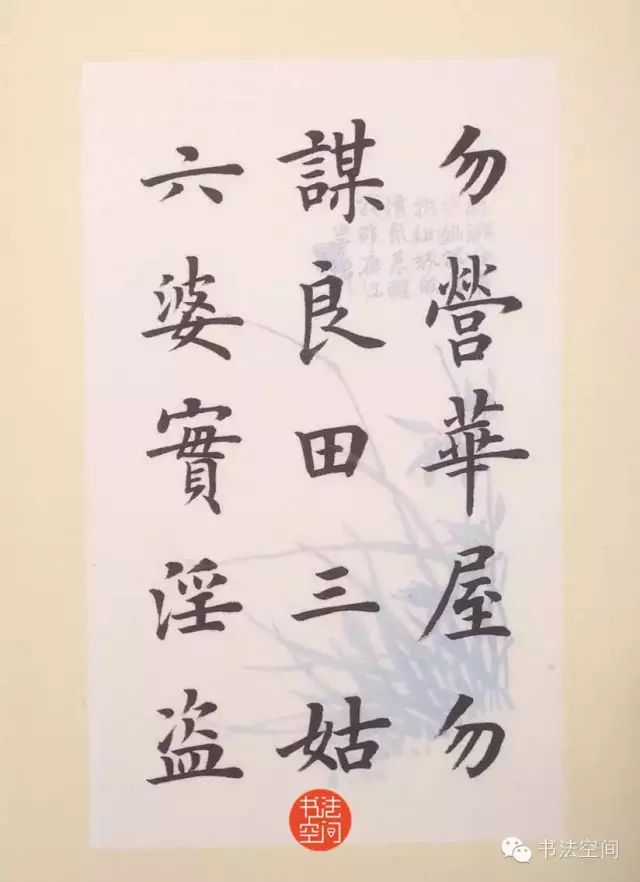 勿營華屋勿
謀良田三姑
六婆實淫盗
书法
空间
书法空间